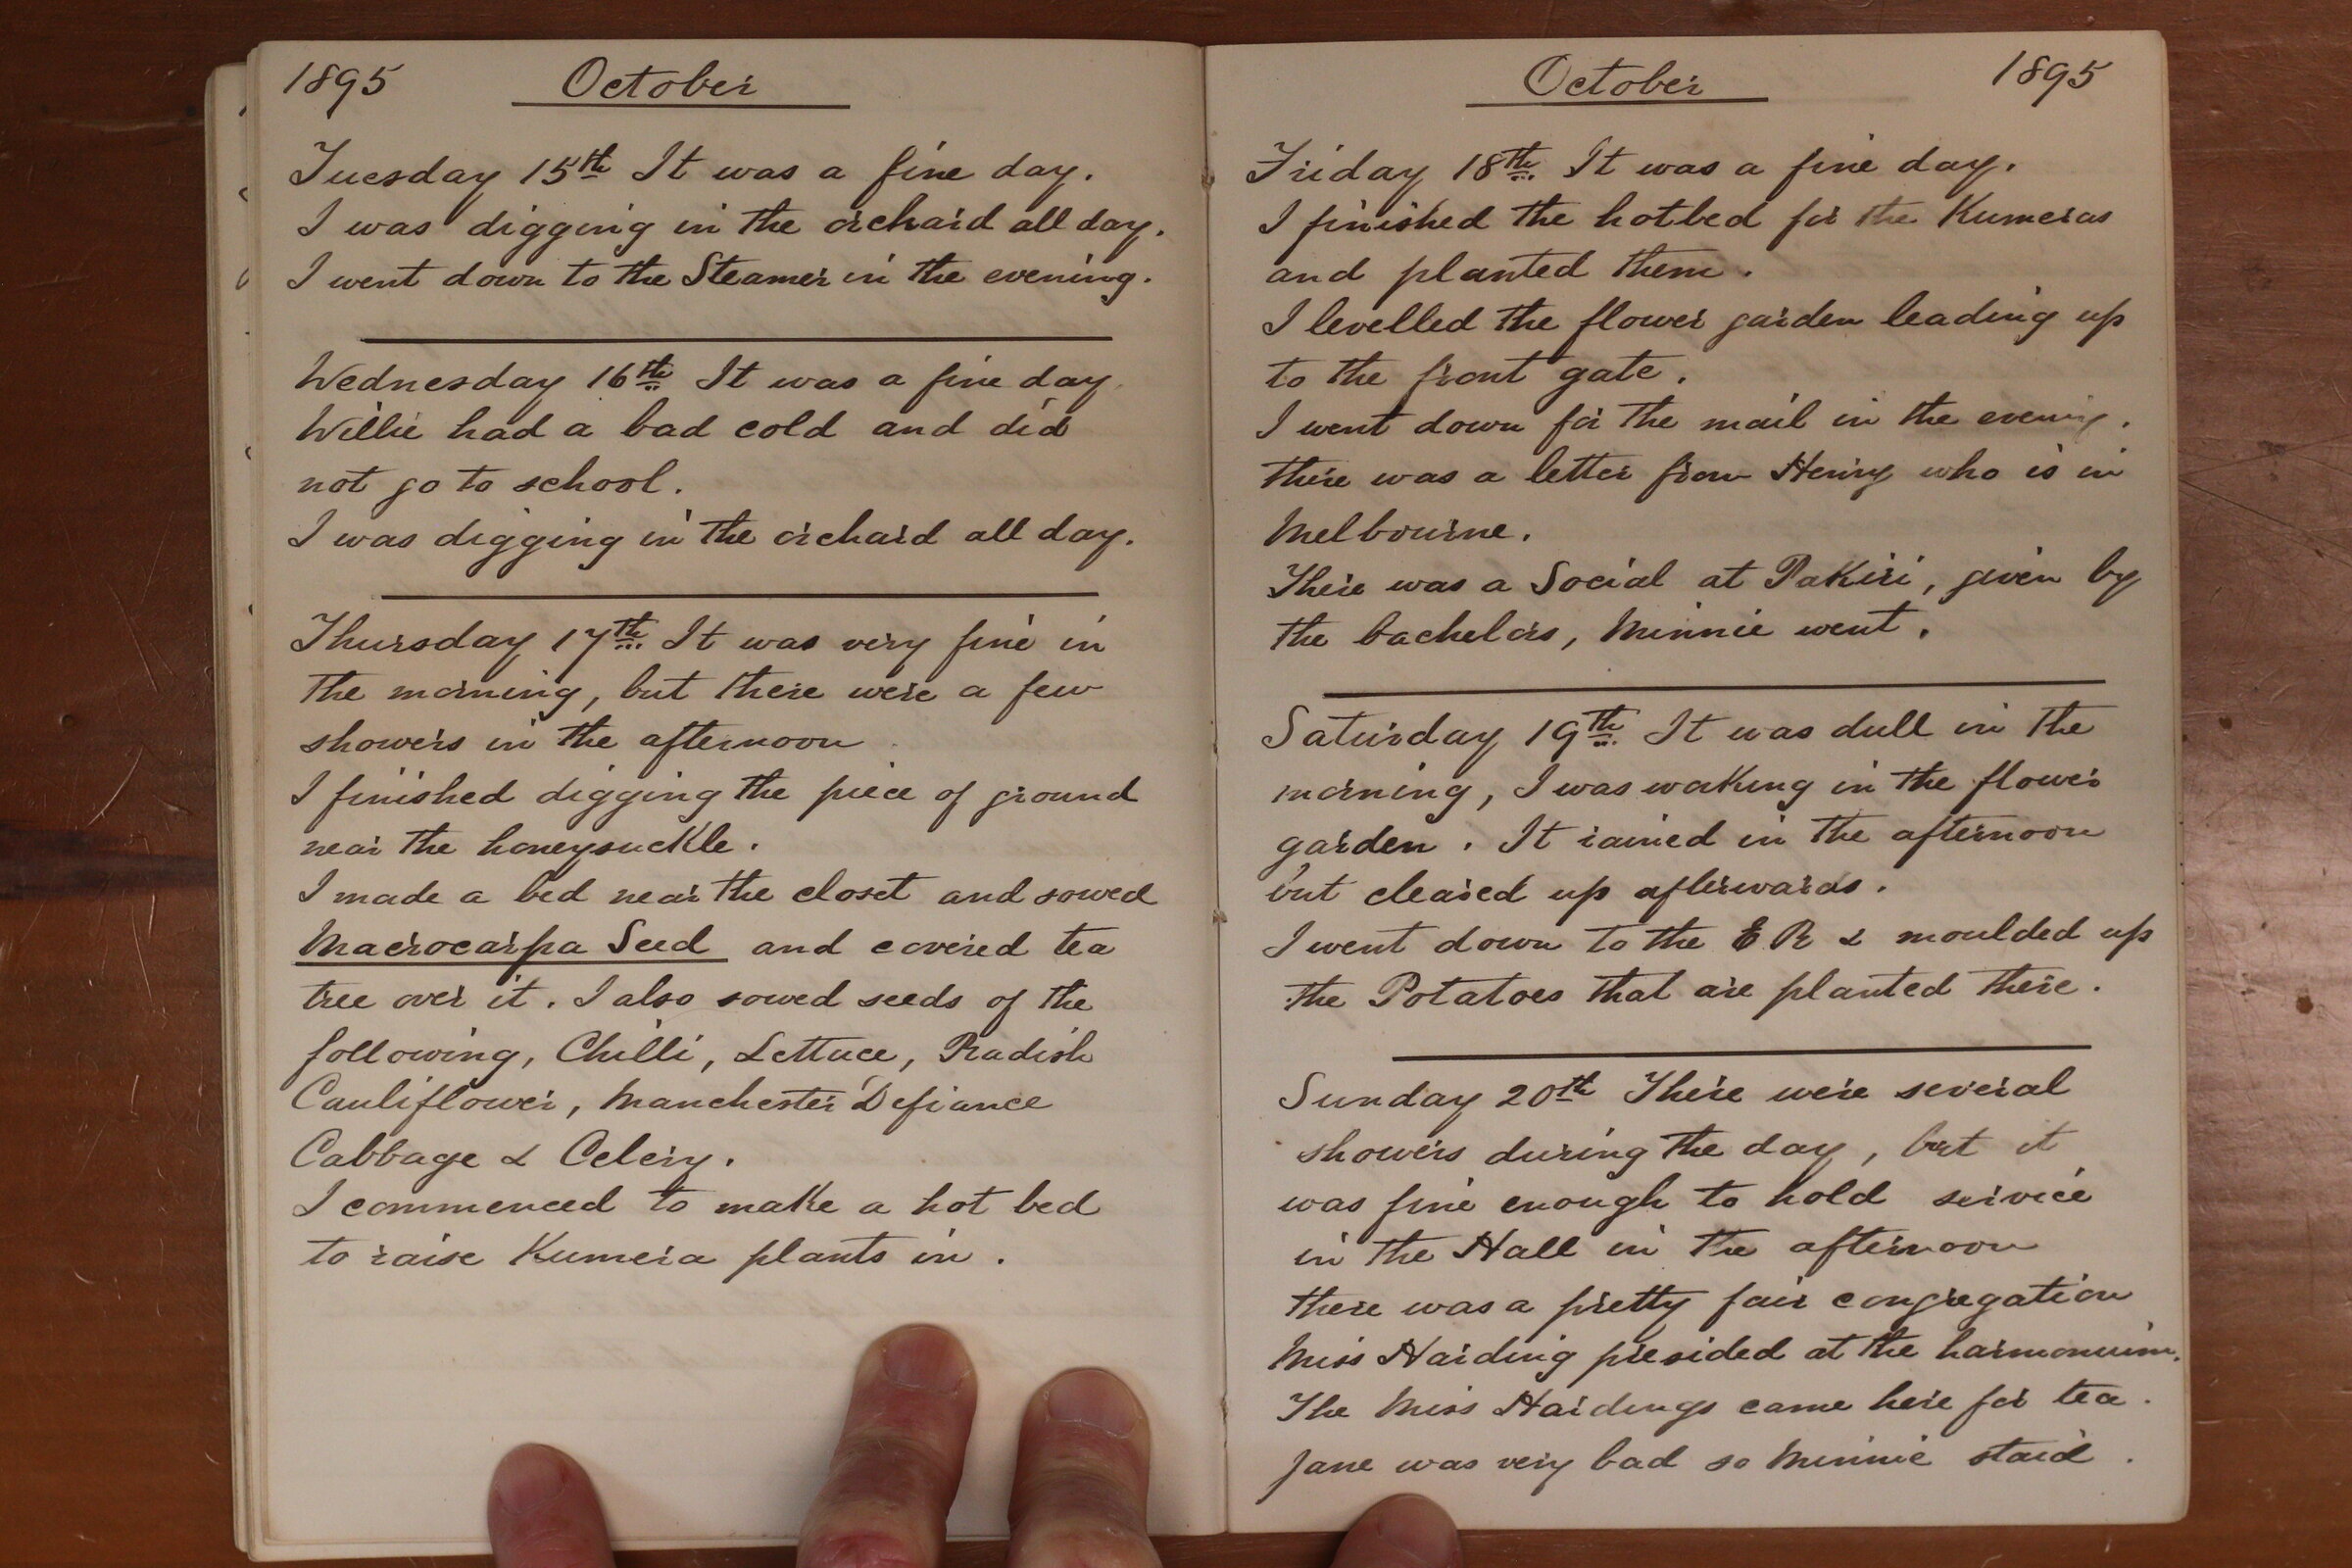 1895 October
Tuesday 15th It was a fine day.
I was digging in the orchard all day.
I went down to the Steamer in the evening.
Wednesday 16th It was a fine day
Willie had a bad cold and did
not go to school.
I was digging in the orchard all day.
Thursday 17th It was very fine in
the morning, but there were a few
showers in the afternoon
I finished digging the piece of ground
near the honeysuckle.
I made a bed near the closet and sowed
Macrocarpa Seed and covered tea
tree over it. I also sowed seeds of the
following, Chilli, Lettuce, Radish
Cauliflower, Manchester Defiance
Cabbage & Celery.
I commenced to make a hot bed
to raise Kumera plants in.
October 1895
Friday 18th It was a fine day.
I finished the hotbed for the Kumeras
and planted them.
I levelled the flower garden leading up
to the front gate.
I went down for the mail in the evening.
there was a letter from Henry who is in
Melbourne.
There was a Social at Pakiri, given by
the bachelors, Minnie went.
Saturday 19th It was dull in the
morning, I was working in the flower
garden. It rained in the afternoon
but cleared up afterwards.
I went down to the E R & moulded up
the Potatoes that are planted there.
Sunday 20th There were several
showers during the day, but it
was fine enough to hold service
in the Hall in the afternoon
there was a pretty fair congregation
Miss Harding presided at the harmonium.
The Miss Hardings came here for tea.
Jane was very bad so Minnie staid.